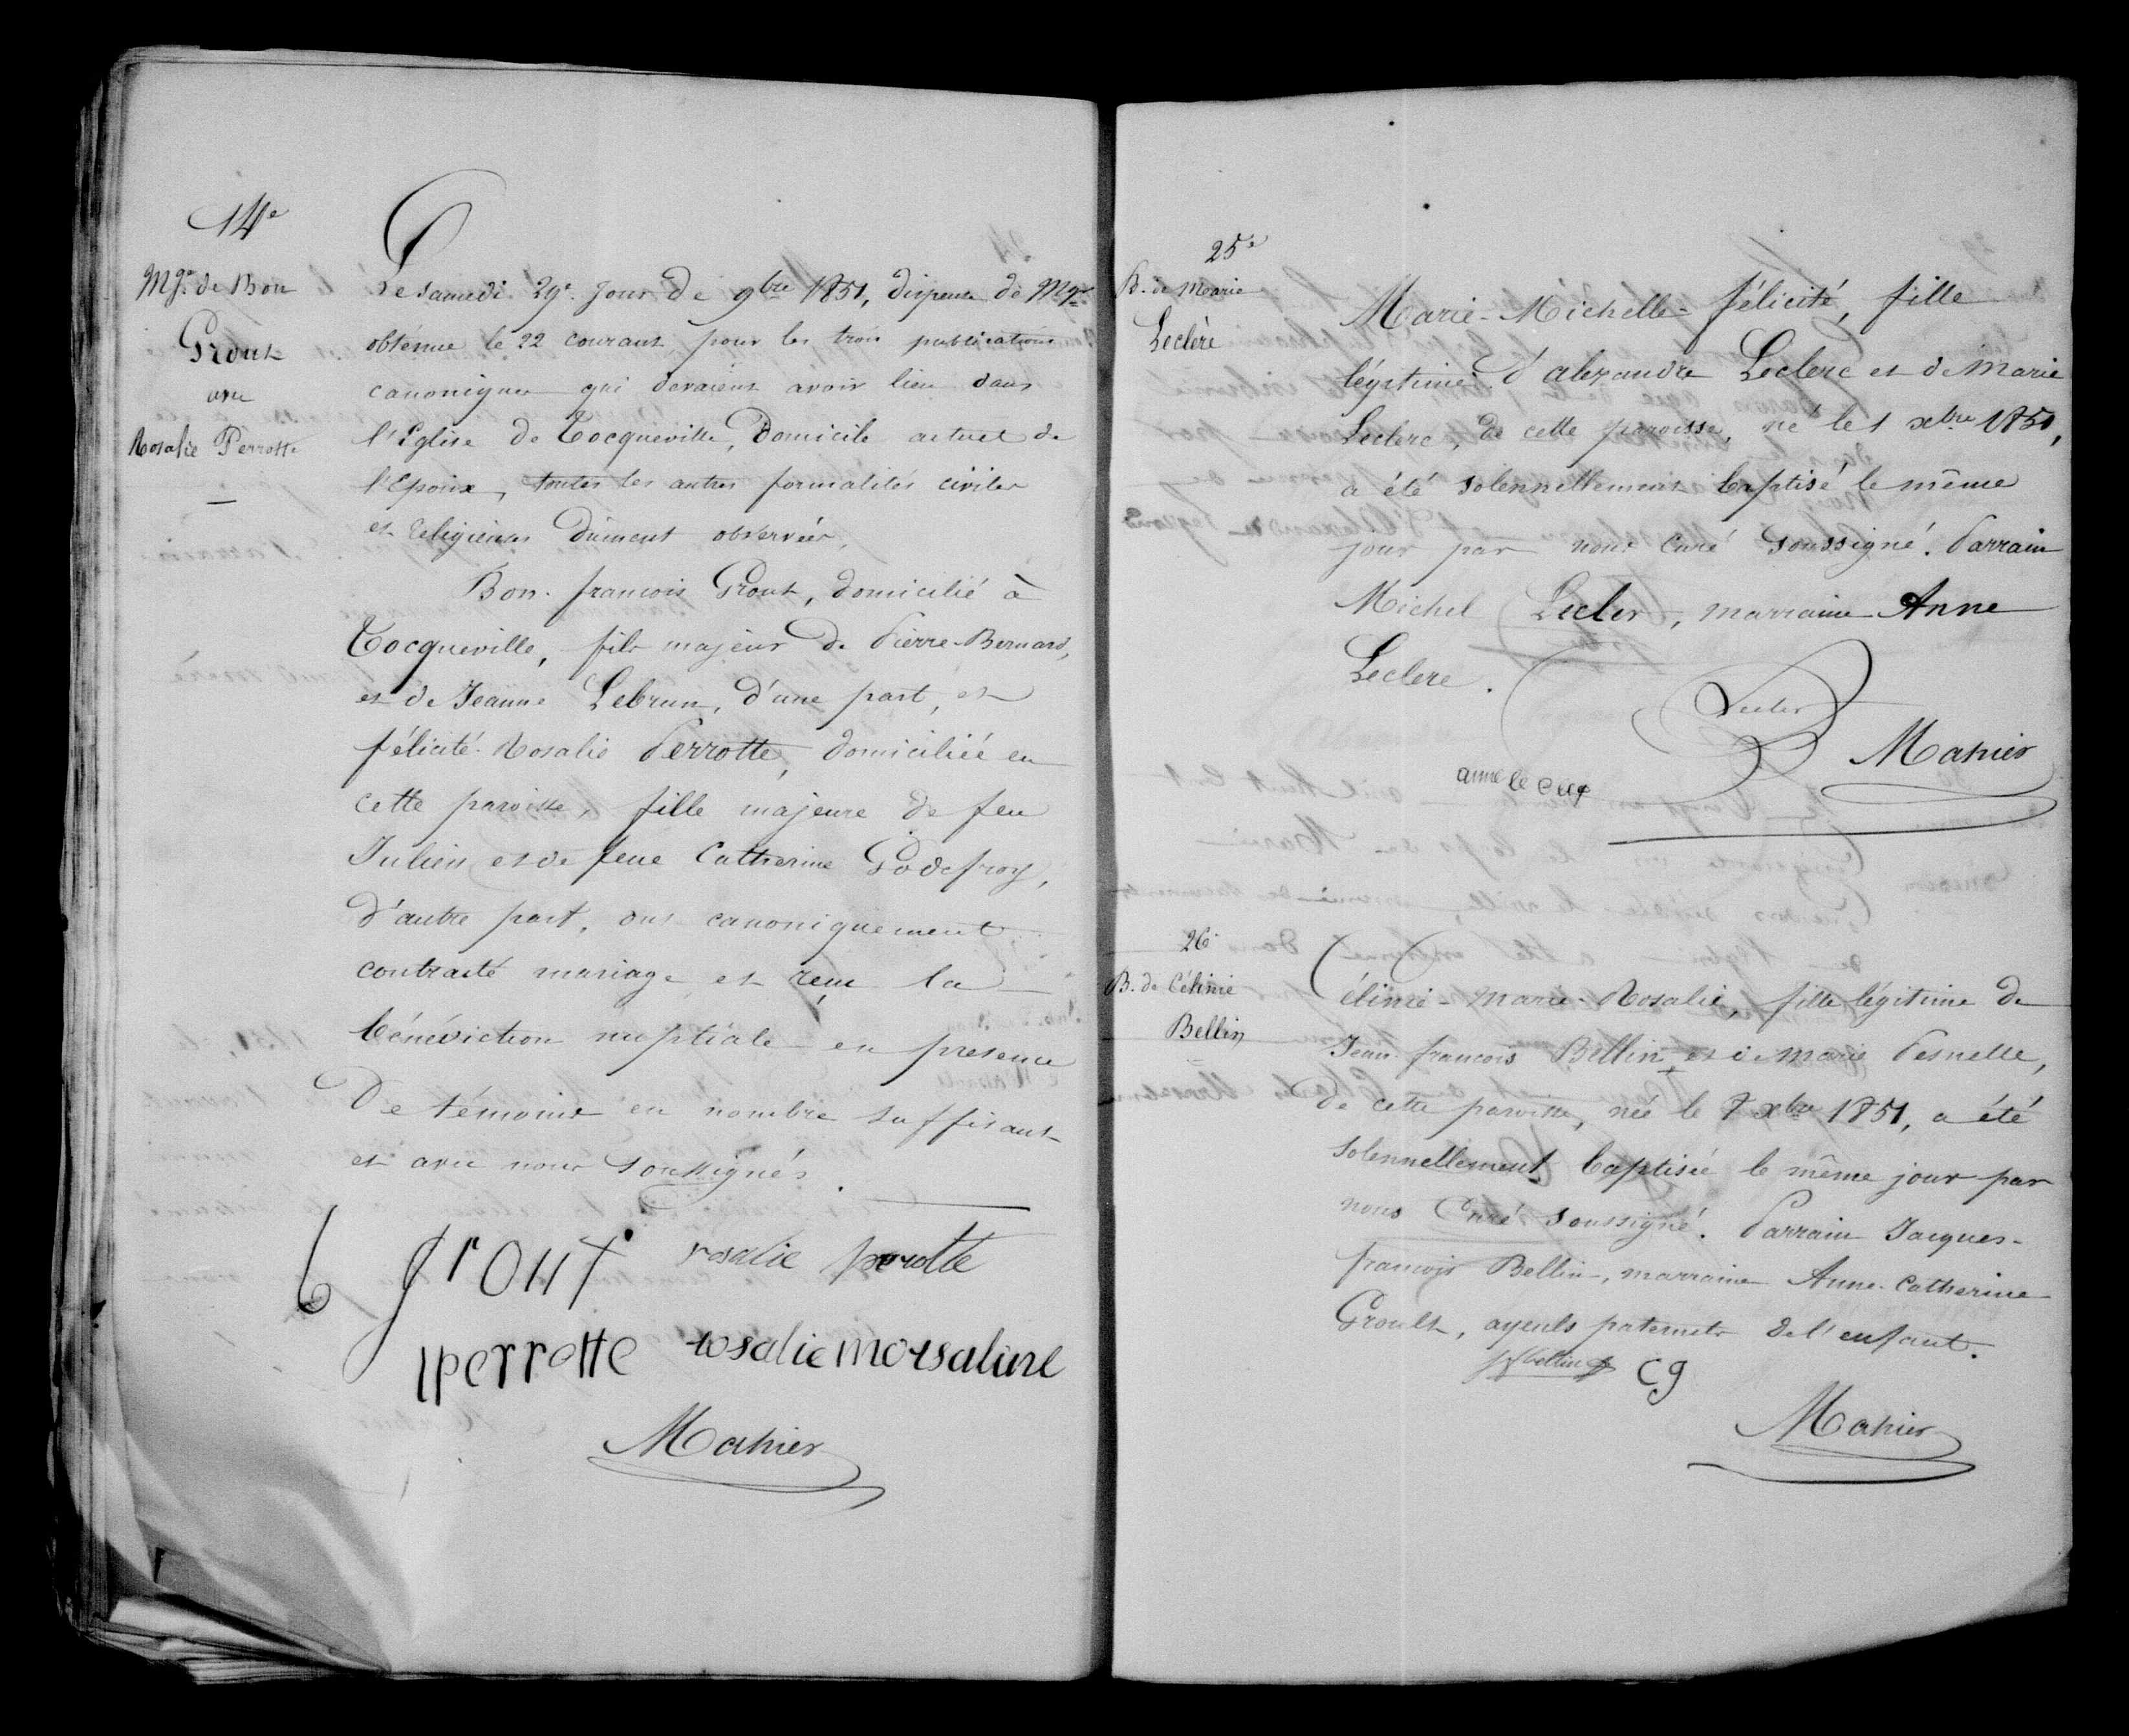 14e
Mge. de Bon
Grout
avec
Rosalie Perrotte
Le samedi 29e. jour de 9bre 1851, dispense de Mgr
obtenue le 22 courant pour les trois publications
canoniques qui devaient avoir lieu dans
l'Eglise de Tocqueville, domicile actuel de
l'Epoux, toutes les autres formalités civiles
et religieuses dûment observées,
Bon-françois Grout, domicilié à
Tocqueville, fils majeur de Pierre-Bernard,
et de Jeanne Lebrun, d'une part, et
félicité-Rosalie Perrotte, domiciliée en
cette paroisse, fille majeure de feu
Julien et de feue Catherine Godefroy,
d'autre part, ont canoniquement
contracté mariage et reçu la
bénédiction nuptiale en presence
De témoins en nombre suffisant
et avec nous soussignés.
b grout rosalie perotte
perrotte rosalie morsaline
Mahier
25e
B. de Marie
Leclèr
Marie-Michelle-félicité, fille
légitime d'alexandre Leclerc et de Marie
Leclerc, de cette paroisse, né le 1 xbre 1851,
a été solennellement baptisé le même
jour par nous curé soussigné. Parrain
Michel Lecler, marraine Anne
Leclere.
Lecler
Mahier
anne le cler
26e
B. de Célinie
Bellin
Célinie-Marie-Rosalie, fille légitime de
Jean-françois Bellin et de Marie Pesnelle,
de cette paroisse, née le 7 xbre 1851, a été
solennellement baptisée le même jour par
nous Curé soussigné. Parrain Jacques-
françois Bellin, marraine Anne-Catherine
Groult, ayeuls paternels de l'enfant.
jf bellin cg
Mahier